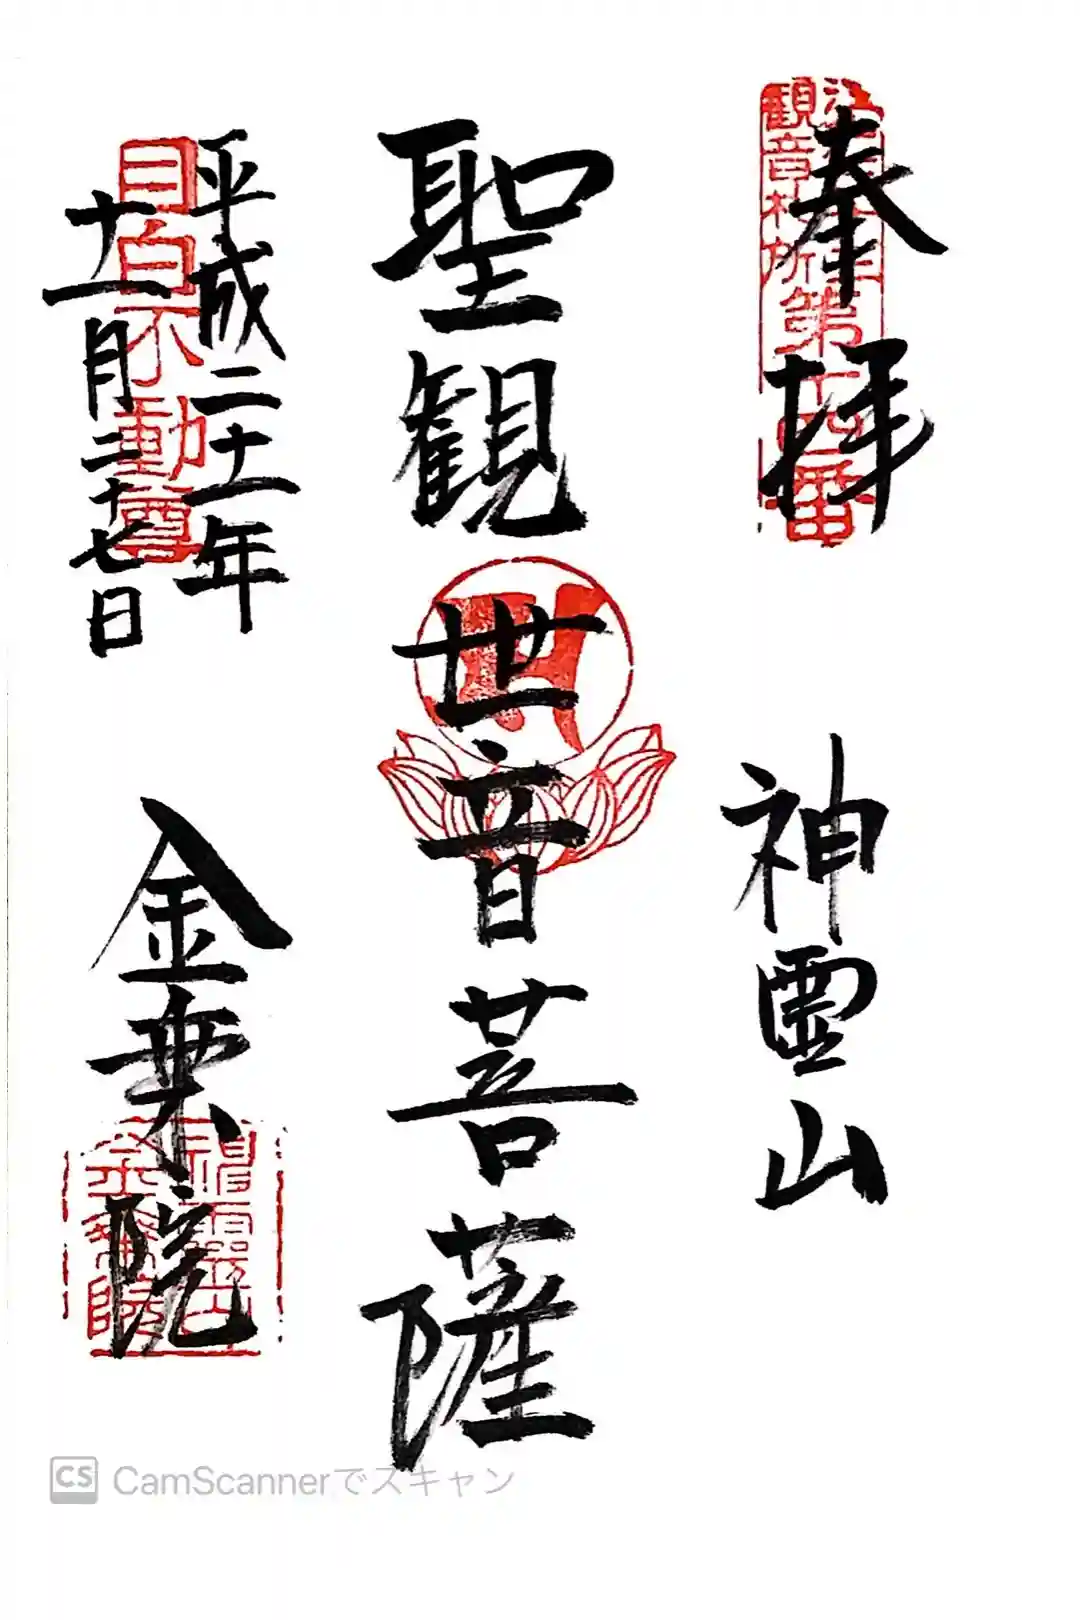 奉拝
神霊山
観音札所第十四番
聖観世音菩薩
平成二十一年
十一月二十七日
目白不動尊
金乗院
神霊山
金乗院
CS CamScannerでスキャン